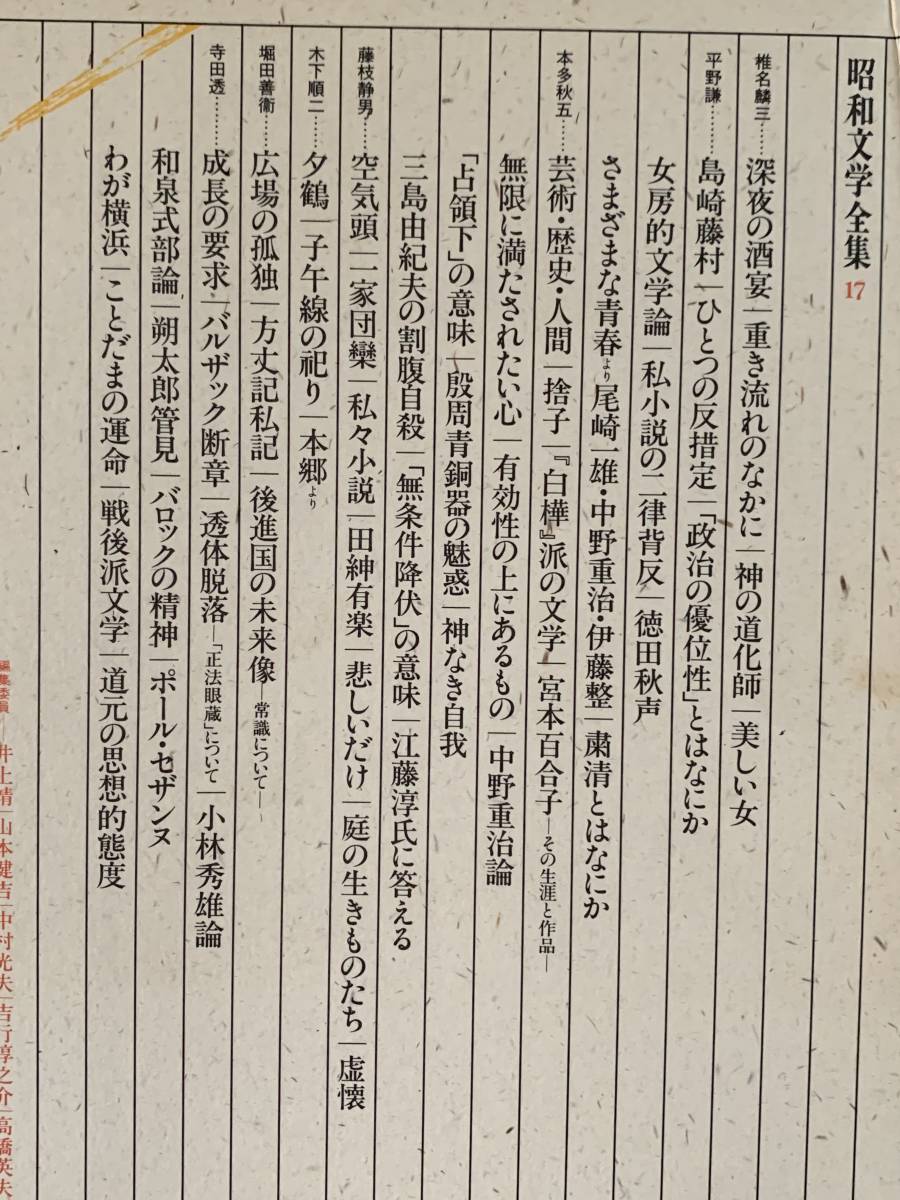 昭和文学全集 17
椎名麟三……深夜の酒宴｜重き流れのなかに｜神の道化師｜美しい女
平野謙………島崎藤村｜ひとつの反措定｜「政治の優位性」とはなにか
女房的文学論｜私小説の二律背反｜徳田秋声
さまざまな青春より 尾崎一雄・中野重治・伊藤整｜粛清とはなにか
本多秋五……芸術・歴史・人間｜捨子｜『白樺』派の文学｜宮本百合子―その生涯と作品―
無限に満たされたい心｜有効性の上にあるもの｜中野重治論
「占領下」の意味｜殷周青銅器の魅惑｜神なき自我
三島由紀夫の割腹自殺｜「無条件降伏」の意味｜江藤淳氏に答える
藤枝静男……空気頭｜一家団欒｜私々小説｜田紳有楽｜悲しいだけ｜庭の生きものたち｜虚懐
木下順二……夕鶴｜子午線の祀り｜本郷より
堀田善衞……広場の孤独｜方丈記私記｜後進国の未来像―常識について―
寺田透………成長の要求｜バルザック断章｜透体脱落―「正法眼蔵」について｜小林秀雄論
和泉式部論｜朔太郎管見｜バロックの精神｜ポール・セザンヌ
わが横浜｜ことだまの運命｜戦後派文学｜道元の思想的態度
編集委員―井上靖｜山本健吉｜中村光夫｜吉行淳之介｜高橋英夫